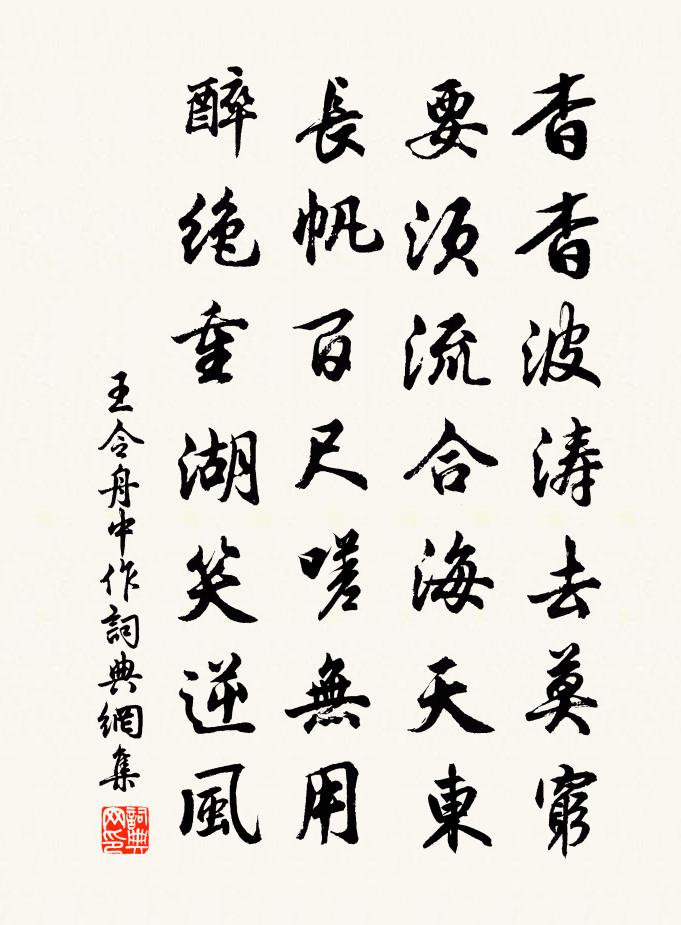 杳杳波涛去莫窮
要須流合海天東
長帆百尺嗟無用
醉絶重湖笑逆風
王令舟中作詞典網集
詞典网印